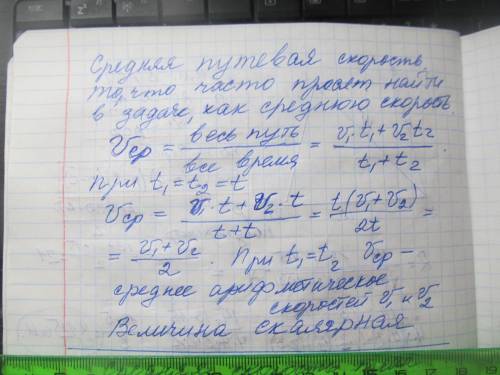 Средняя путевая скорость
то, что часто просят найти
в задаче, как среднюю скорость.
Vср = весь путь / все время = v₁·t₁+v₂t₂ / t₁+t₂
При t₁=t₂=t
Vср = v₁·t+v₂·t / t+t = t(v₁+v₂) / 2t =
= v₁+v₂ / 2 . При t₁=t₂ Vср –
среднее арифметическое
скоростей v₁ и v₂
Величина скалярная